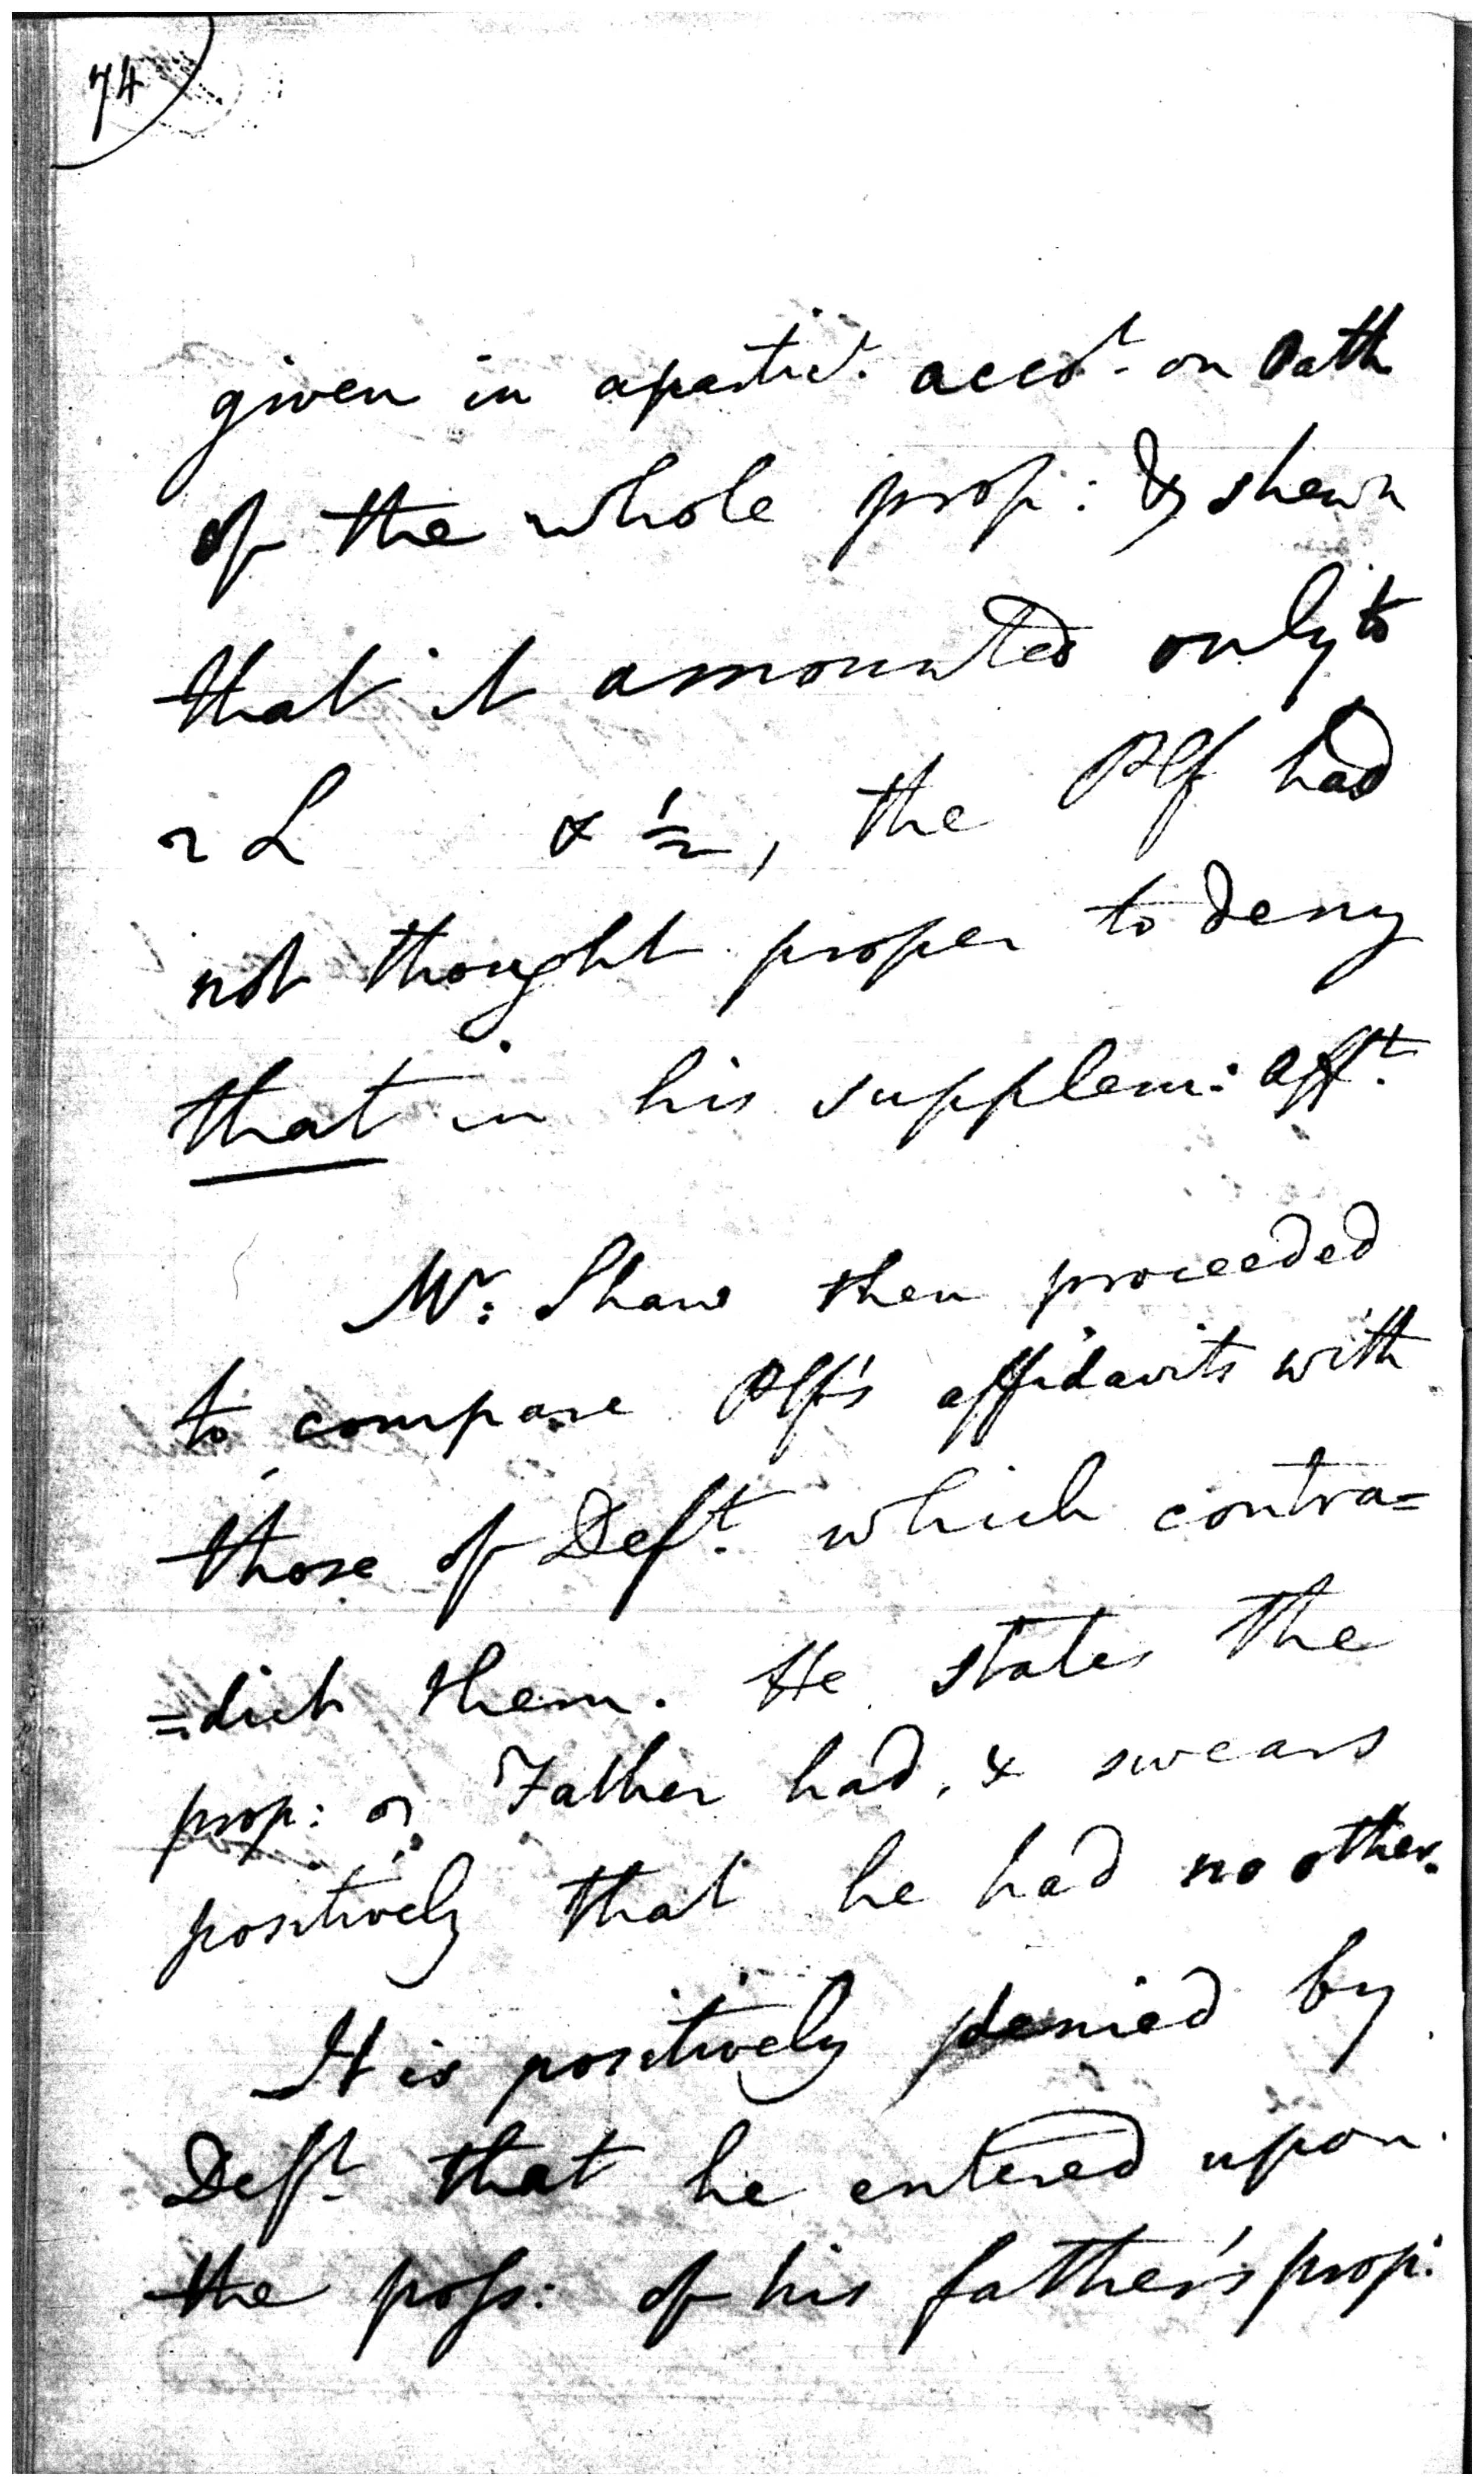 74
given in a partic.r acco.t on Oath
of the whole prop: & shewn
that it amounted only to
2 L & ½, the Plf had
not thought proper to deny
that in his supplem: Aff.t
Mr: Shaw then proceeded
to compare Plf's affidavits with
those of Def.t which contra=
=dict them. He states the
prop: Father had, & swears
positively that he had no other.
It is positively denied by
Def.t that he entered upon
the poss: of his father's prop: